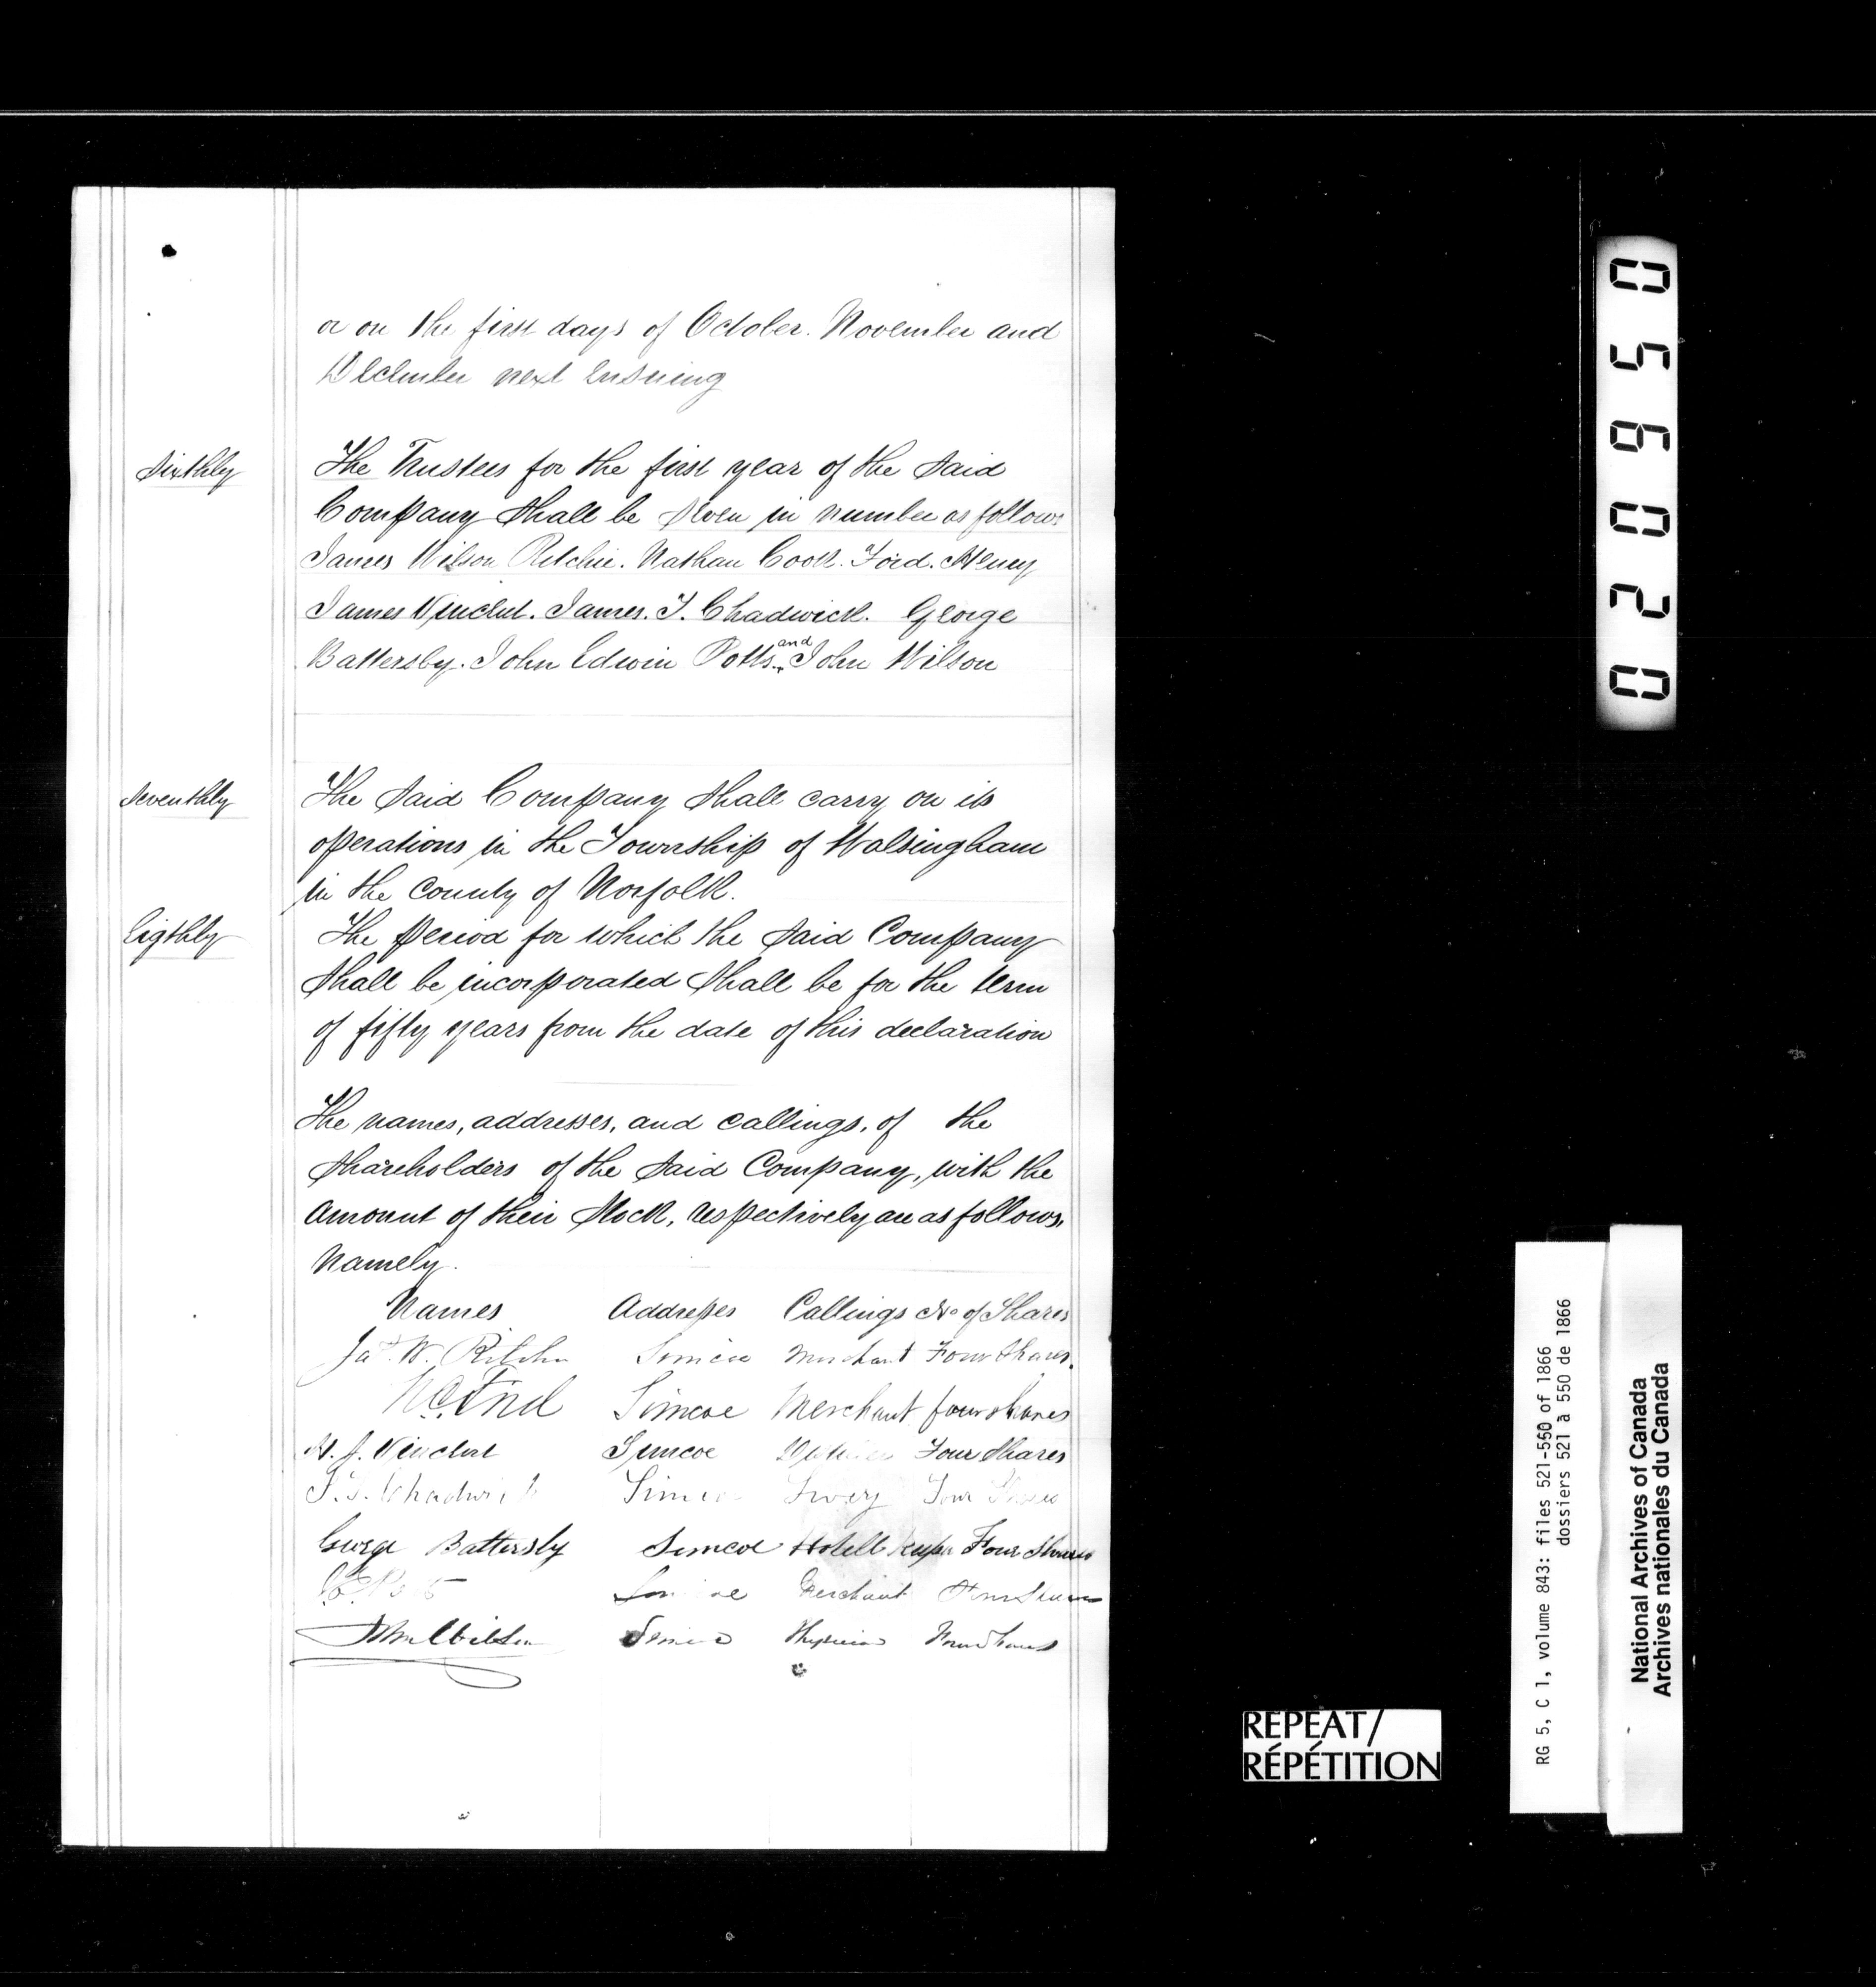 or on the first days of October. November and
December next ensuing
Sixthly
The Trustees for the first year of the said
Company shall be seven in number as follows
James Wilson Ritchie. Nathan Cook. Ford. Henry
James Vincent. James. T. Chadwick. George
Battersby. John Edwin Potts. and John Wilson
Seventhly
The said Company shall carry on its
operations in the Township of Walsingham
in the County of Norfolk.
Eigthly
The period for which the said Company
shall be incorporated shall be for the term
of fifty years from the date of this declaration
The names, addresses, and callings, of the
Shareholders of the said Company, with the
amount of their Stock, respectively are as follows,
Namely.
Names Addresses Callings No of Shares
Jas. W. Ritchie Simcoe Merchant Four Shares.
N C Ford Simcoe Merchant four shares
H. J. Vincent Simcoe Four Shares
J. T. Chadwick Simcoe Livery Four Shares
George Battersby Simcoe Hotell keeper Four Shares
J. E. Potts Simcoe Merchant Four Shares
John Wilson Simcoe Physician Four Shares
020650
REPEAT/
RÉPÉTITION
RG 5, C 1, volume 843: files 521-550 of 1866
dossiers 521 à 550 de 1866
National Archives of Canada
Archives nationales du Canada